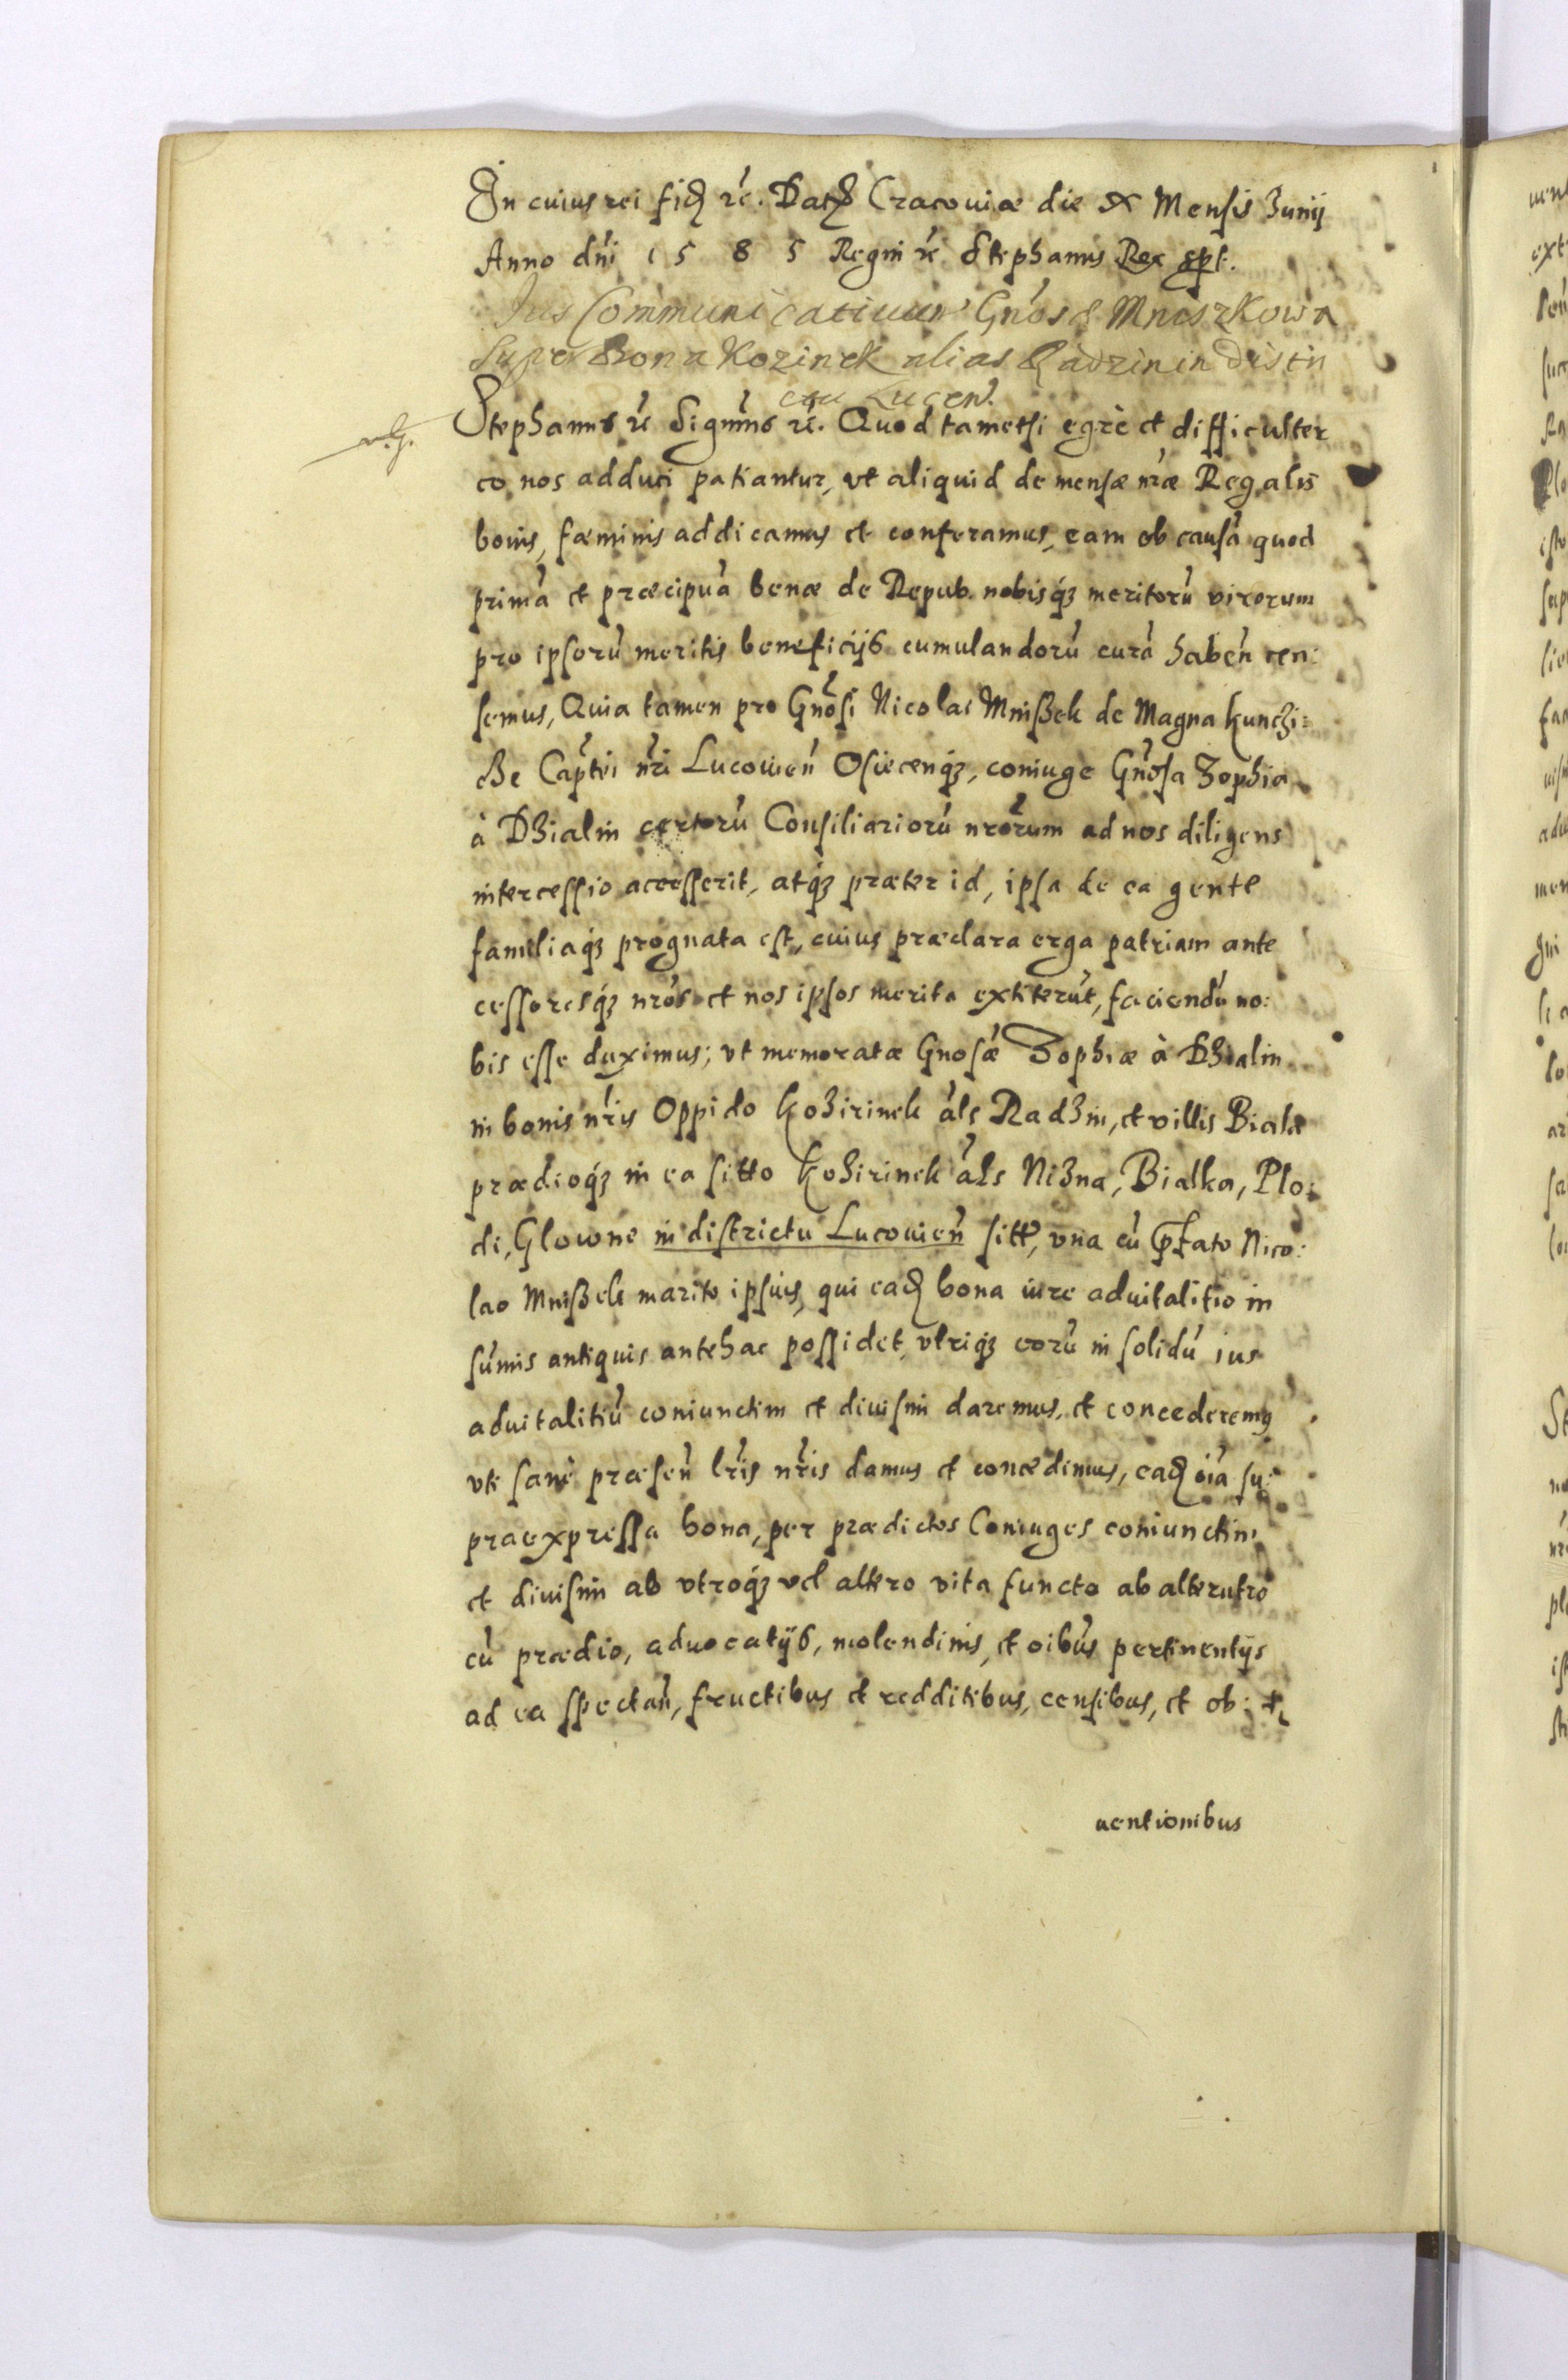 In cuius rei fid ꝛc. Dat Cracouiæ die X Mensis Junij
Anno dni 1585 Regni ꝛc Stephanus Rex spt.
Jus Communicatiuum Gnosæ Mniszkowa
Super Bona Kozinek alias Radzin in distri
ctu Lucen.
Stephanus ꝛc Significamus ꝛc. Quod tametsi egrè et difficulter
eo nos adduci patiantur, vt aliquid de mensæ nræ Regalis
bonis, fæminis addicamus et conferamus, eam ob causã quod
primã et præcipuã benæ de Repub. nobisq́ꝫ meritorũ virorum
pro ipsorũ meritis beneficijs cumulandorũ curã haben cen:
semus, Quia tamen pro Gnosi Nicolai Mnißek de Magna Kunczi:
cze Capitei nri Lucouien Osiecenq́ꝫ, coniuge Gnosa Zophia
à Dzialin certorũ Consiliariorũ nrorum ad nos diligens
intercessio accesserit, atq́ꝫ præter id, ipsa de ea gente
familiaq́ꝫ prognata est, cuius præclara erga patriam ante
cessoresq́ꝫ nros et nos ipsos merita extiterũt, faciendũ no:
bis esse duximus; vt memoratæ Gnosæ Zophiæ à Dzialin
in bonis nris Oppido Kozirinek als Radzin, et villis Biala
prædioq́ꝫ in ea sitto Kozirinek als Nizna, Bialka, Plo:
di, Glowne in districtu Lucouien sitt, vna cũ Præfato Nico:
lao Mnißek marito ipsius, qui ead bona iure aduitalitio in
sumis antiquis antehac possidet, vtriq́ꝫ eorũ in solidũ ius
aduitalitiũ coniunctim et diuisim daremus, et concederemꝰ
vti sanè præsen lris nris damus et concedimus, ead oia su:
praexpressa bona, per prædictos Coniuges coniunctim
et diuisim ab vtroq́ꝫ vel altero vita functo ab alterutro
cũ prædio, aduocatijs, molendinis, et oibus pertinentijs
ad ea spectan, fructibus et redditibus, censibus, et ob:
uentionibus